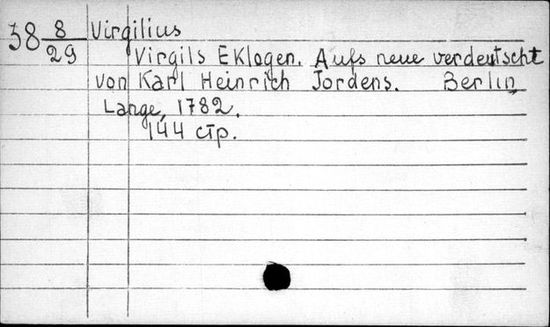 38 8/29 Virgilius
Virgils Eklogen. Aufs neue verdeutscht
von Karl Heinrich Jordens. Berlin,
Lange, 1782.
144 стр.